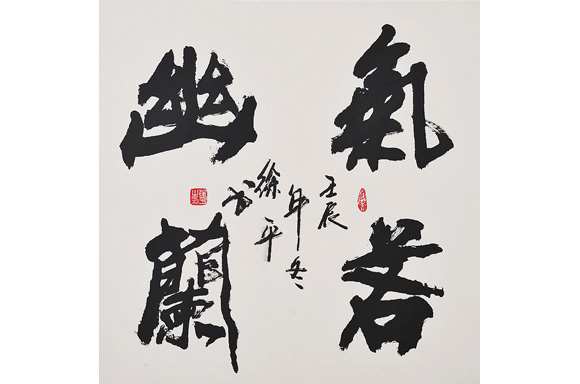 氣若
幽蘭
壬辰
年冬
徐平
書